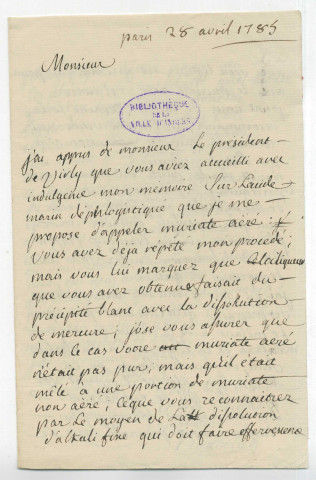 paris 28 avril 1785
Monsieur
BIBLIOTHÈQUE
DE LA
VILLE D'AMIENS
j'ai appris de monsieur Le president
de Virly que vous aviez accueilli avec
indulgence mon memoire Sur l'acide
marin dephlogistiqué que je me
propose d'appeler muriate aéré :
Vous avez deja repeté mon procedé ;
mais vous lui marquez que
que vous avez obtenue faisait du
précipité blanc avec la dissolution
de mercure ; j'ose vous assurer que
dans le cas votre muriate aéré
n'était pas pur, mais qu'il était
mêlé à une portion de muriate
non aéré ; ce que vous reconnaitrez
par le moyen de la dissolution
d'alkali fixe qui doit faire effervescence